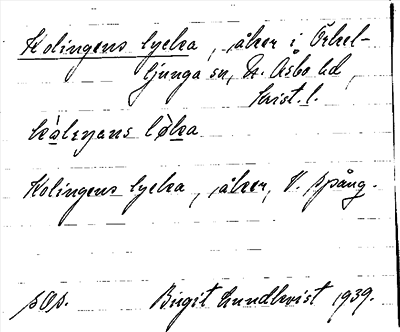 Kolingens lycka, åker i Örkel-
ljunga sn, N. Åsbo hd,
Krist. l.
Kolingens lycka, åker, V. Spång.
Birgit Lundkvist 1939.